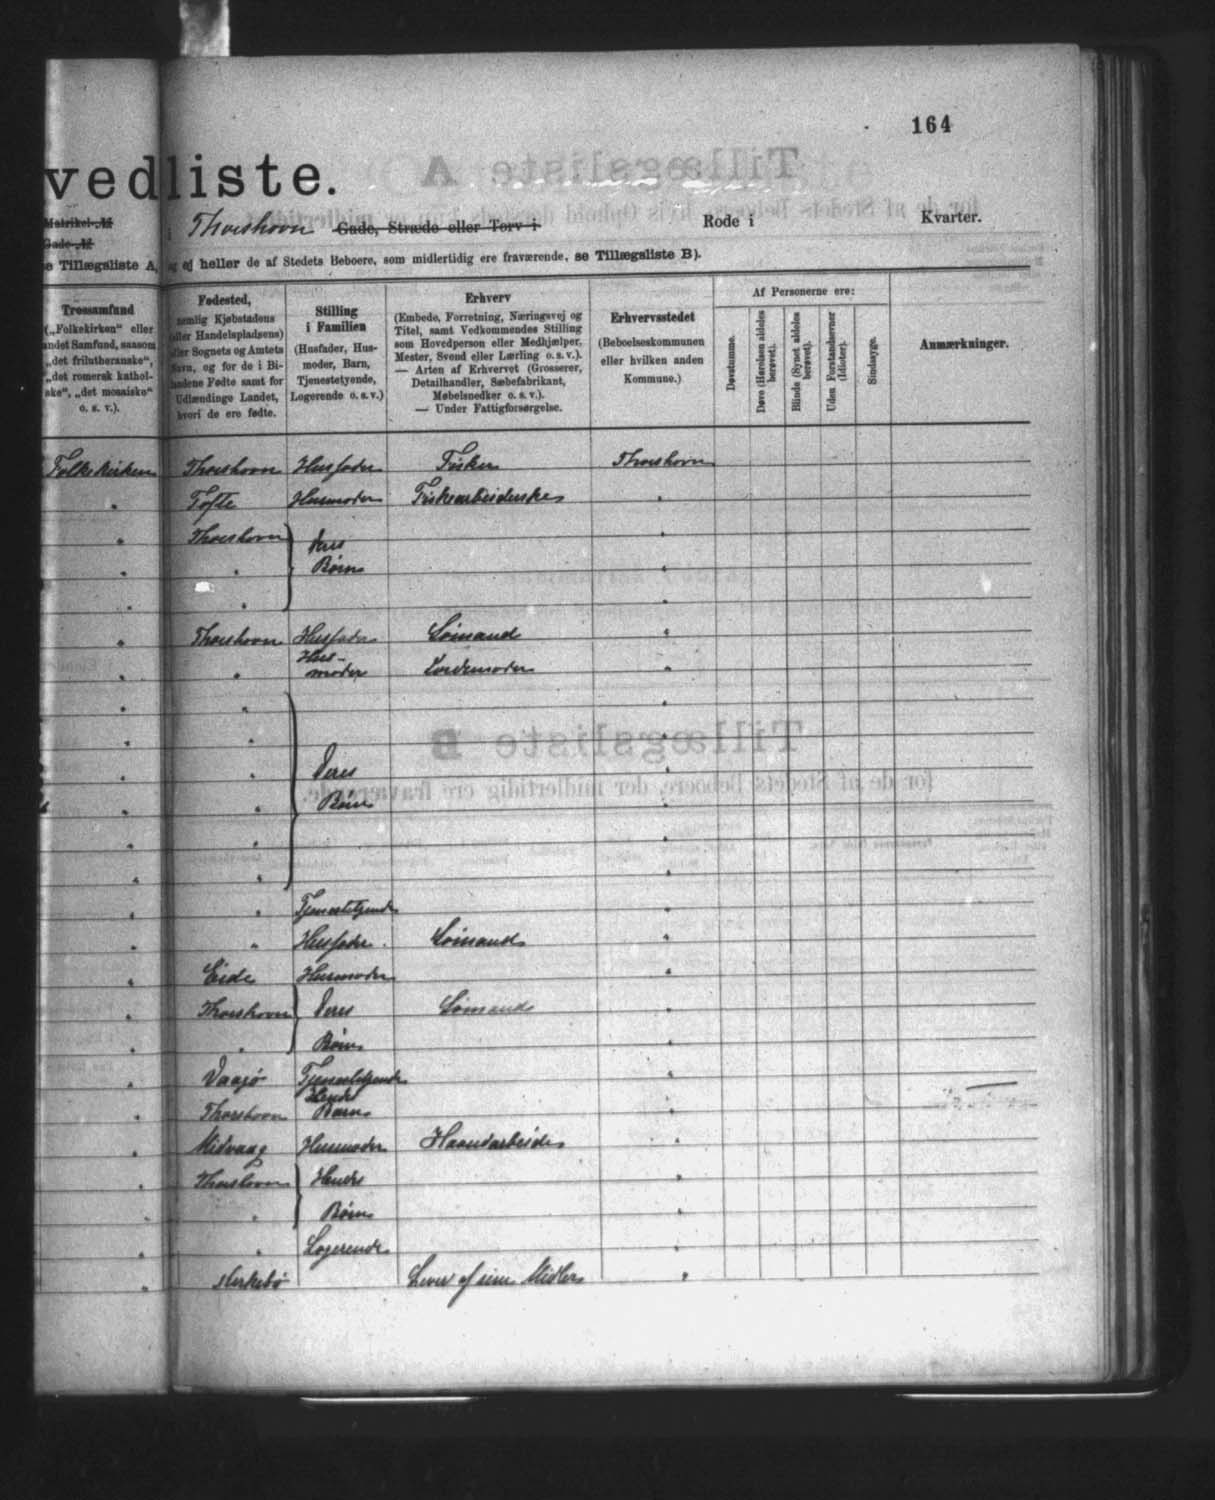 164
vedliste.
Matrikel-№
Gade-№
i Thorshavn Gade, Stræde eller Torv i Rode i Kvarter.
e Tillægsliste A, og ej heller de af Stedets Beboere, som midlertidig ere fraværende, se Tillægsliste B).
Trossamfund
(„Folkekirken“ eller
andet Samfund, saasom
„det frilutheranske“,
„det romersk kathol-
ske“, „det mosaiske“
o. s. v.).
Fødested,
nemlig Kjøbstadens
(eller Handelspladsens)
eller Sognets og Amtets
Navn, og for de i Bi-
landene Fødte samt for
Udlændinge Landet,
hvori de ere fødte.
Stilling
i Familien
(Husfader, Hus-
moder, Barn,
Tjenestetyende,
Logerende o. s. v.)
Erhverv
(Embede, Forretning, Næringsvej og
Titel, samt Vedkommendes Stilling
som Hovedperson eller Medhjælper,
Mester, Svend eller Lærling o. s. v.).
— Arten af Erhvervet (Grosserer,
Detailhandler, Sæbefabrikant,
Møbelsnedker o. s. v.).
— Under Fattigforsørgelse.
Erhvervsstedet
(Beboelseskommunen
eller hvilken anden
Kommune.)
Af Personerne ere:
Døvstumme.
Døve (Hørelsen aldeles
berøvet).
Blinde (Synet aldeles
berøvet).
Uden Forstandsevner
(Idioter).
Sindssyge.
Anmærkninger.
Folkekirken Thorshavn Husfader Fisker Thorshavn
" Tofte Husmoder Fiskearbeiderske "
" Thorshavn Deres "
" " Børn "
" " "
" Thorshavn Husfader Sömand "
" " Hus-
moder Jordemoder "
" " "
" " "
" " Deres "
" " Børn "
" " "
" " "
" " Tjenestetyende "
" " Husfader Sömand "
" Eide Husmoder "
" Thorshavn Deres Sömand "
" " Børn "
" Vaagø Tjenestetyende "
" Thorshavn Hendes
Barn "
" Midvaag Husmoder Haandarbeide "
" Thorshavn Hendes "
" " Børn "
" " Logerende "
" Kirkebø Lever af sine Midler "